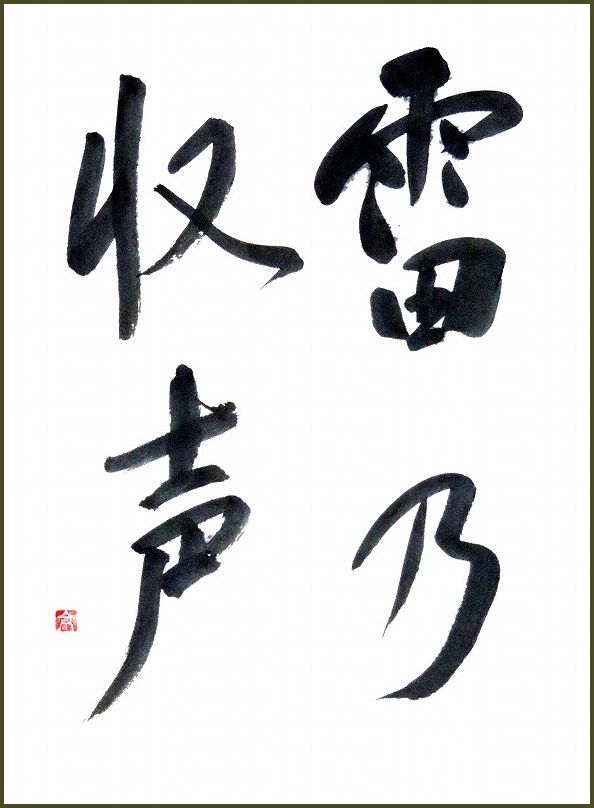 雷乃
収声